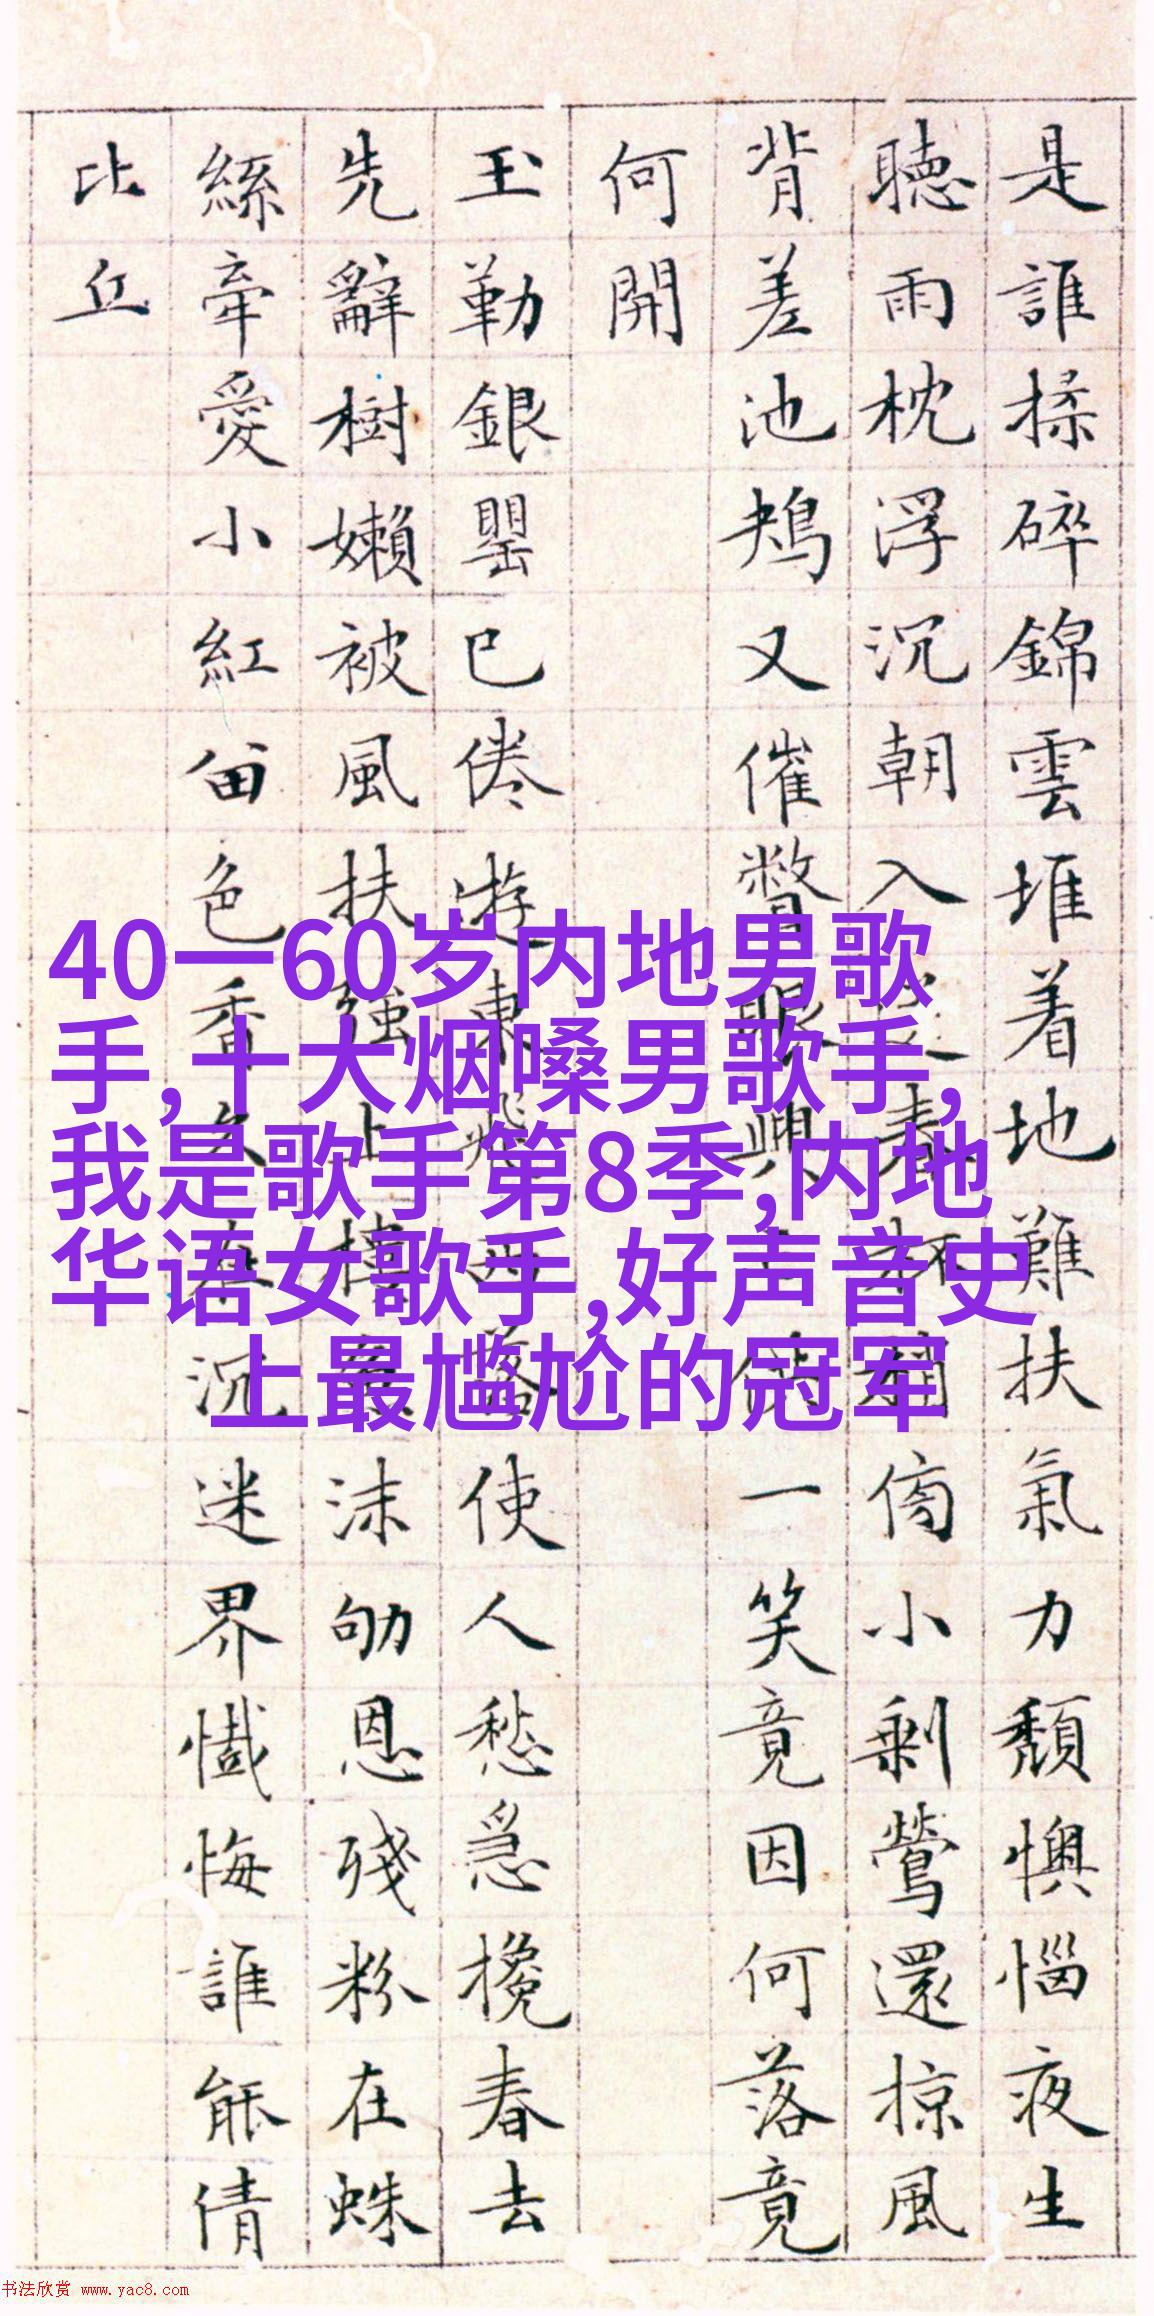 是誰揉碎錦雲堆着地難扶氣力頹懊惱夜生
聽雨枕浮沉朝入春杯小剩鶯還掠風
背差池鳺又催瞥眼興供一笑竟因何落竟
何開
玉勒銀罌已倦遊東飛西落使人愁急攙春去
先辭樹嬾被風扶強上樓沫恩殘粉在蛛
絲牽愛小紅留色香久在沉迷界懺悔誰能倩
比丘
40一60岁内地男歌
手,十大烟嗓男歌手,
我是歌手第8季,内地
华语女歌手,好声音史
上最尴尬的冠军
书法欣赏 www.yac8.com